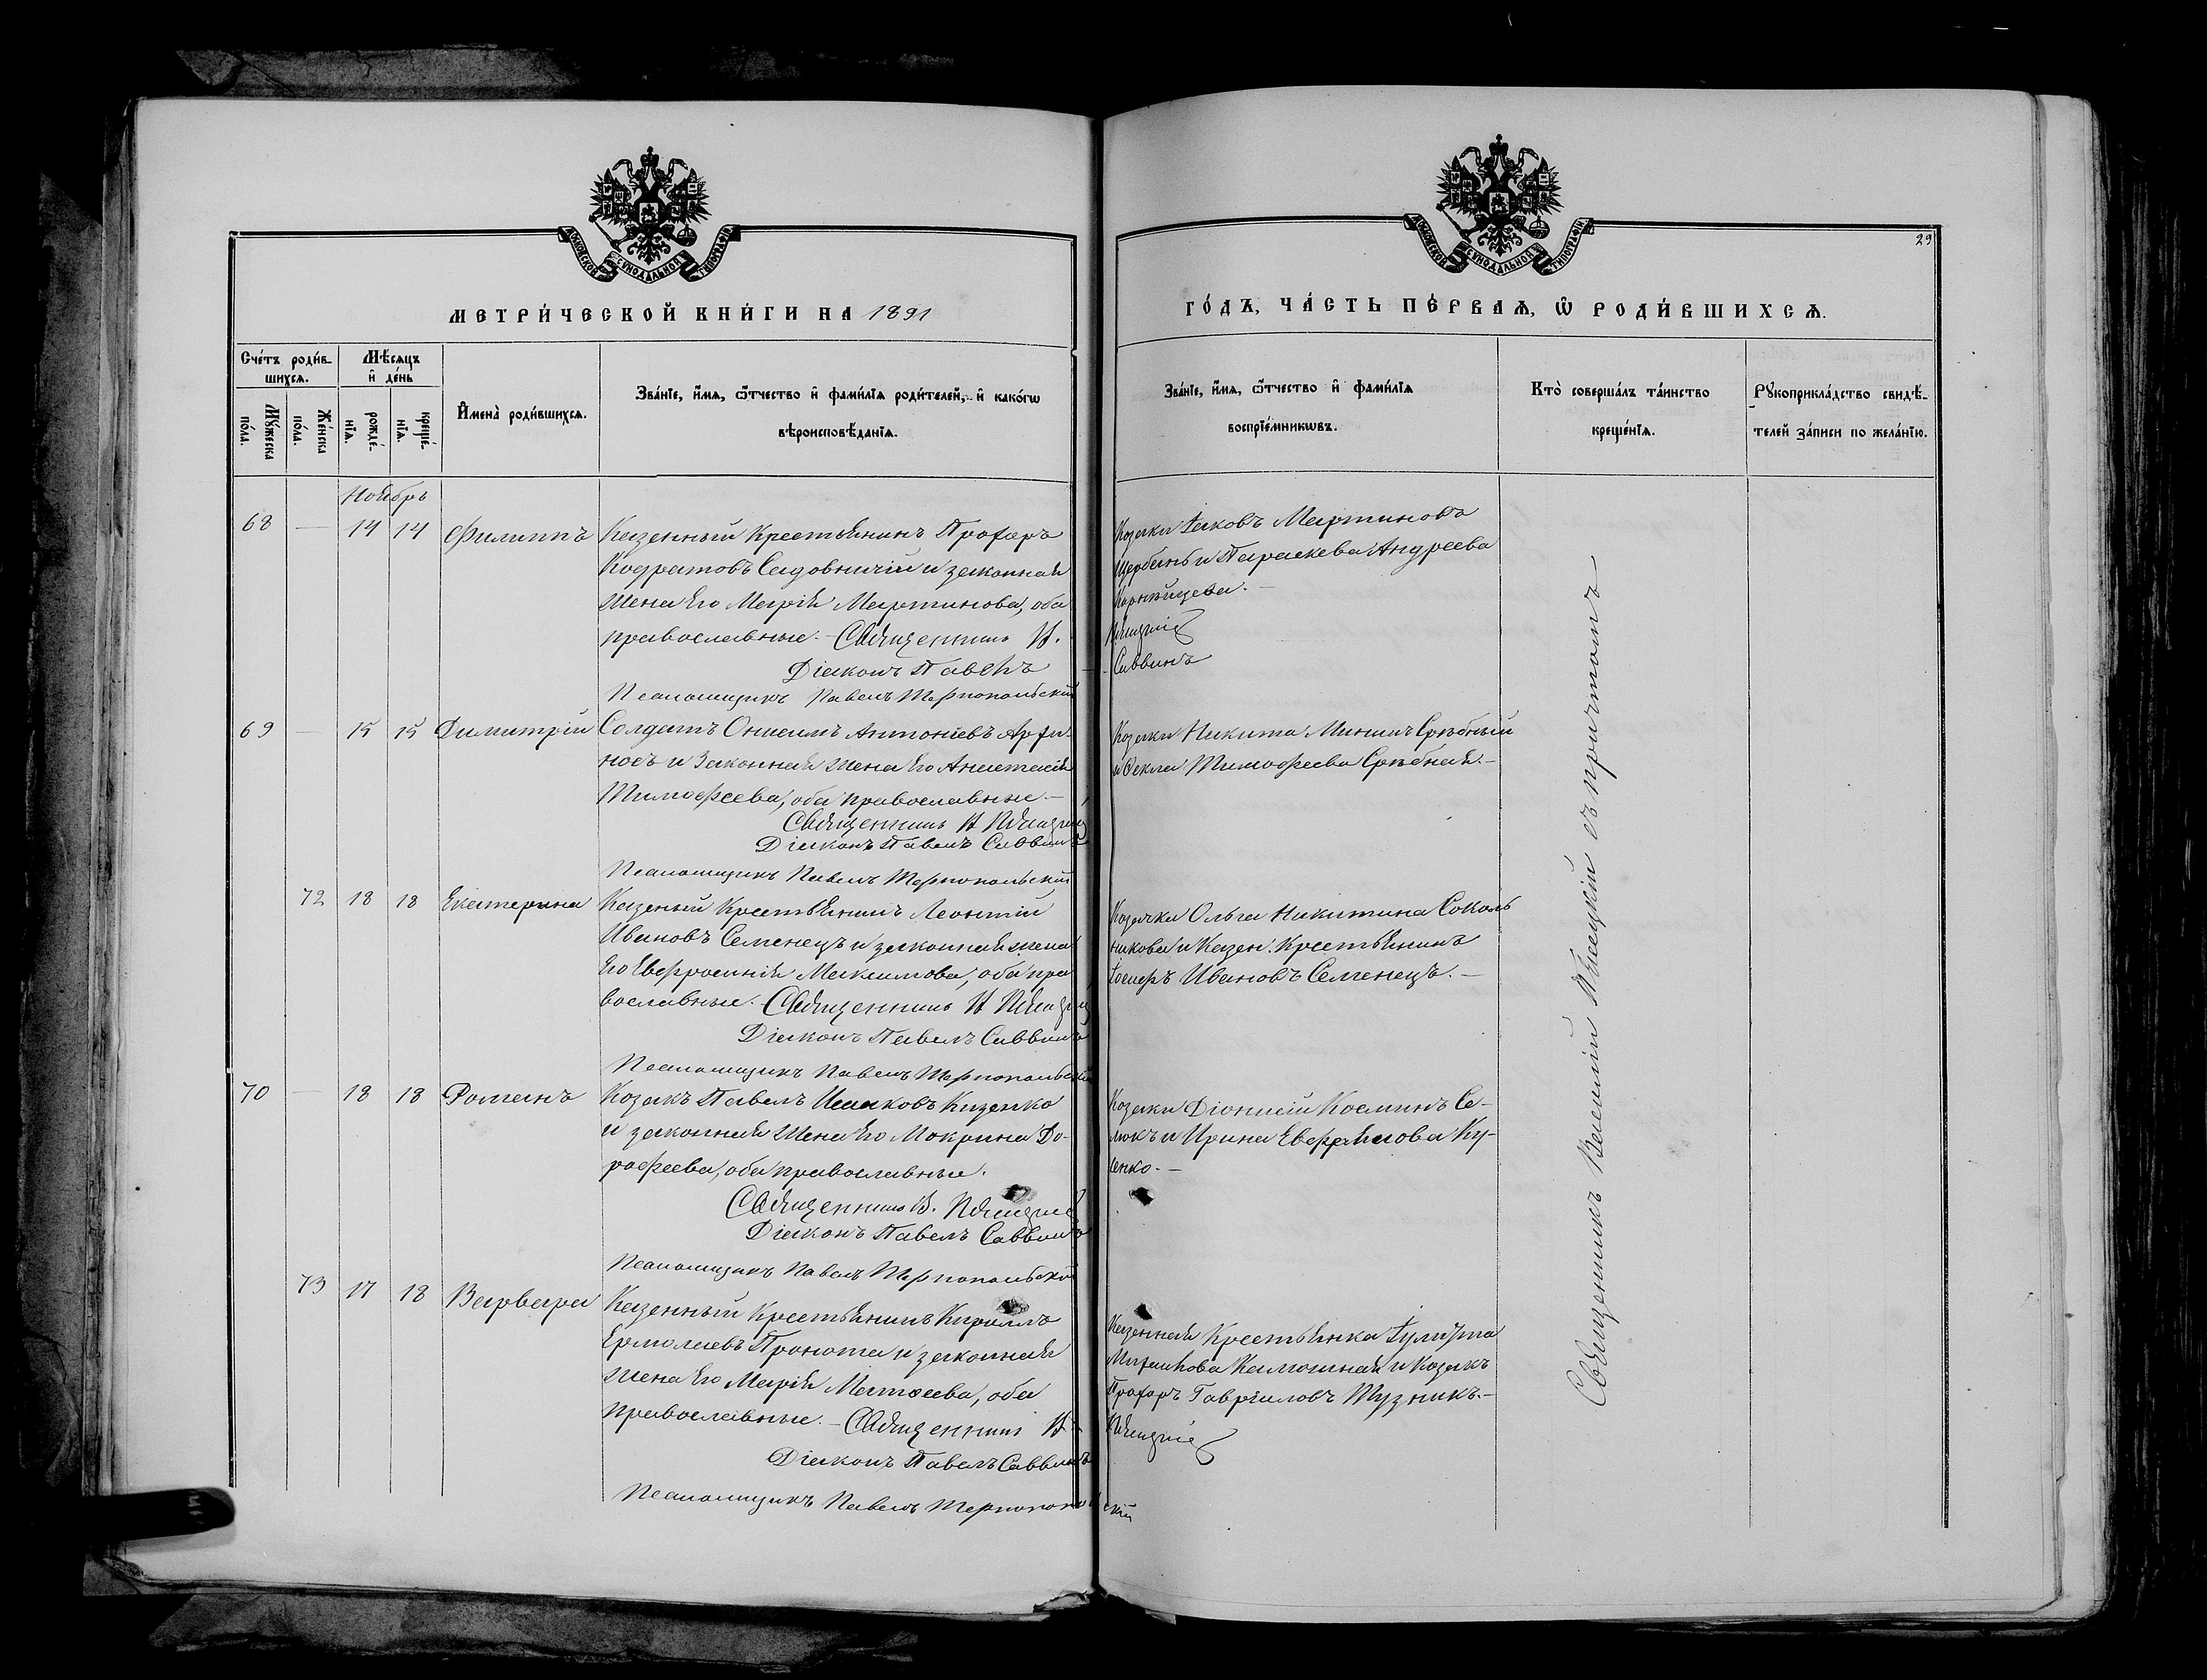 МОСКОВСКОЙ СУНОДАЛЬНОЙ ТИПОГРАФІИ
МЕТРИ́ЧЕСКОЙ КНИ́ГИ НА 1891
Сче́тъ роди́в-
шихсѧ.
Мѣ́сѧцъ
и҆ де́нь
Мꙋ́жеска
по́ла.
Же́нска
по́ла.
рожде́-
нїѧ.
креще́-
нїѧ.
И҆мена̀ роди́вшихсѧ.
Зва́нїе, и҆́мѧ, ѻ҆́тчество и҆ фами́лїѧ роди́телей, и҆ како́гѡ
вѣроисповѣ́данїѧ.
Ноябрь
68 — 14 14 Филиппъ
Казенный Крестьянинъ Прохоръ
Кодратовъ Садовничій и законная
жена его Марія Мартинова, оба
православные. — Священникъ В.
Діаконъ Павелъ
Псаломщикъ Павелъ Тернопольскій
69 — 15 15 Димитрій
Солдатъ Онисимъ Антоніевъ
и законная жена его Анастасія
Тимофеева, оба православные —
Священникъ В
Діаконъ Павелъ Саввинъ
Псаломщикъ Павелъ Тернопольскій
72 18 18 Екатерина
Казеный Крестьянинъ Леонтій
Ивановъ Семенецъ и законная жена
его Евфросинія Максимова, оба пра
вославные. — Священникъ В
Діаконъ Павелъ Саввинъ
Псаломщикъ Павелъ Тернопольскій
70 — 18 18 Романъ
Козакъ Павелъ Исааковъ Кизенко
и законная жена его Мокрина До-
рофеева, оба православные.
Священникъ В.
Діаконъ Павелъ Саввинъ
Псаломщикъ Павелъ Тернопольскій
73 17 18 Варвара
Казенный Крестьянинъ Кириллъ
Ермолаевъ и законная
жена его Марія Матѳеева, оба
православные. — Священникъ В
Діаконъ Павелъ Саввинъ
Псаломщикъ Павелъ Тернопольскій
29
МОСКОВСКОЙ СУНОДАЛЬНОЙ ТИПОГРАФІИ
ГО́ДЪ, ЧА́СТЬ ПЕ́РВАѦ, Ѡ҆ РОДИ́ВШИХСѦ.
Зва́нїе, и҆́мѧ, ѻ҆́тчество и҆ фами́лїѧ
воспрїе́мникѡвъ.
Кто̀ соверша́лъ та́инство
креще́нїѧ.
Рꙋкоприкла́дство свидѣ́-
телей за́писи по жела́нїю.
Козаки Іаковъ Мартиновъ
Щербань и Параскева Андреева
Саввинъ
Козаки Никита Мининъ Срѣбный
и Ѳекла Тимофеева Срѣбная. —
Козачка Ольга Никитина Соколь
никова и Казен. Крестьянинъ
Іосифъ Ивановъ Семенецъ. —
Козаки Діонисій Косминъ Се-
люкъ и Ирина Евфимова Ку-
ленко. —
Казенная Крестьянка Іулитта
и Козакъ
Прохоръ Гавріиловъ Тузникъ. —
Священникъ Василій съ причтомъ